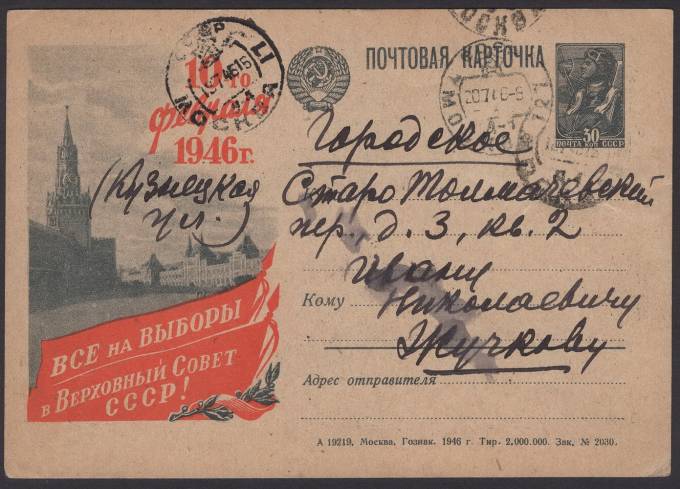 ПОЧТОВАЯ КАРТОЧКА
30
ПОЧТА КОП СССР
МОСКВА
10го
февраля
1946 г.
Городское
(Кузнецкая
ул.)
Старо Толмачевский
пер. д. 3, кв. 2
Ивану
Кому Николаевичу
Жучкову
Адрес отправителя
ВСЕ НА ВЫБОРЫ
В ВЕРХОВНЫЙ СОВЕТ
СССР!
А 19219. Москва. Гознак. 1946 г. Тир. 2.000.000. Зак. № 2030.